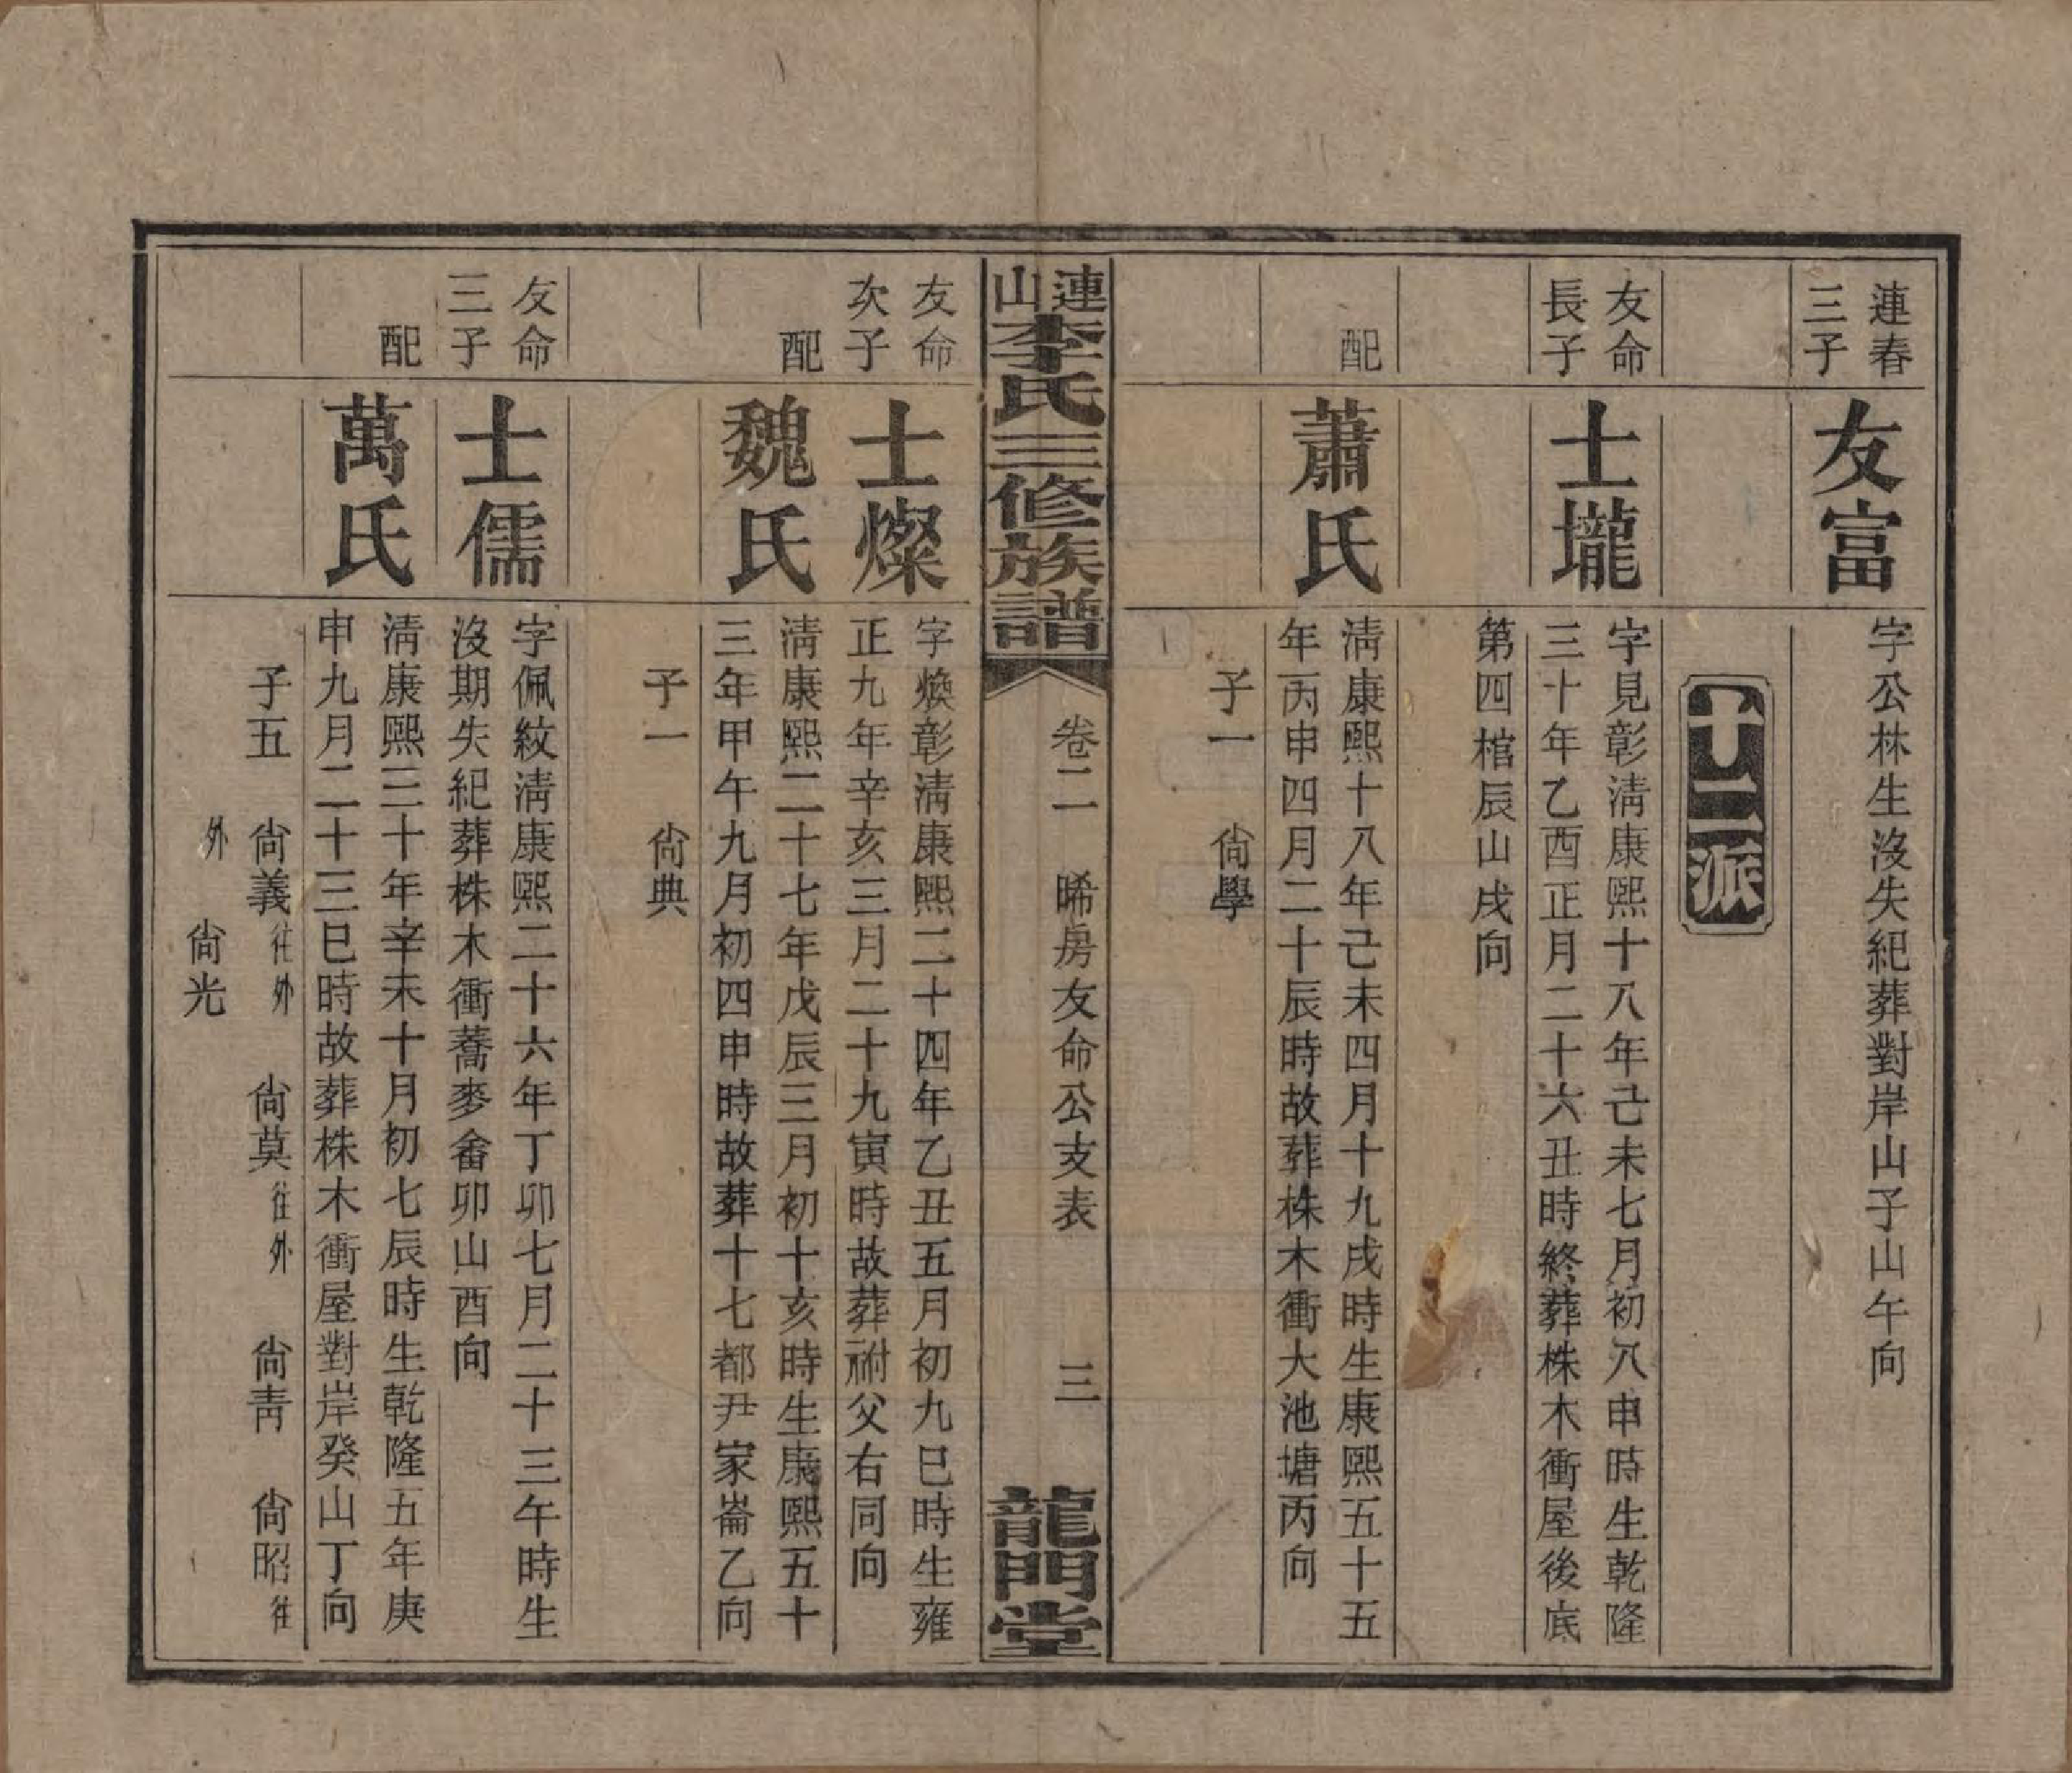 連春
三子
友富
字公林生沒失紀葬對岸山子山午向
十二派
友命
長子
士壠
字見彰淸康熙十八年己未七月初八申時生乾隆
三十年乙酉正月二十六丑時終葬株木衝屋後底
第四棺辰山戌向
配
蕭氏
淸康熙十八年己未四月十九戌時生康熙五十五
年丙申四月二十辰時故葬株木衝大池塘丙向
子一 尙學
連山李氏三修族譜
卷二 晞房友命公支表 三
龍門堂
友命
次子
士燦
字煥彰淸康熙二十四年乙丑五月初九巳時生雍
正九年辛亥三月二十九寅時故葬祔父右同向
配
魏氏
淸康熙二十七年戊辰三月初十亥時生康熙五十
三年甲午九月初四申時故葬十七都尹家崙乙向
子一 尙典
友命
三子
士儒
字佩紋淸康熙二十六年丁卯七月二十三午時生
沒期失紀葬株木衝蕎麥畬卯山酉向
配
萬氏
淸康熙三十年辛未十月初七辰時生乾隆五年庚
申九月二十三巳時故葬株木衝屋對岸癸山丁向
子五 尙義往外 尙莫往外 尙靑 尙昭往
外 尙光